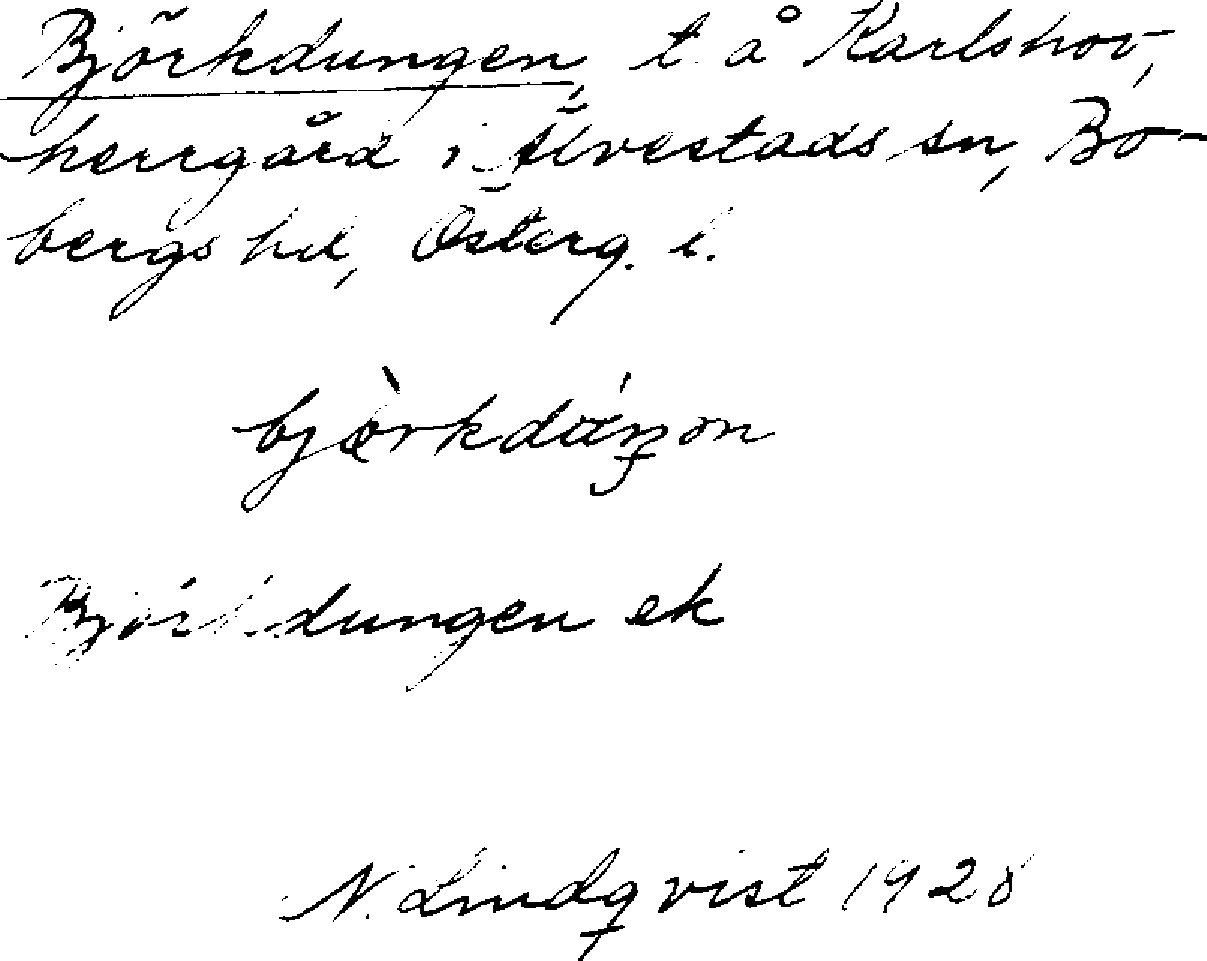 Björkdungen, t. å Karlshov,
herrgård i Älvestads sn, Bo-
bergs hd, Österg. l.
Björkdungen ek
N. Lindqvist 1928